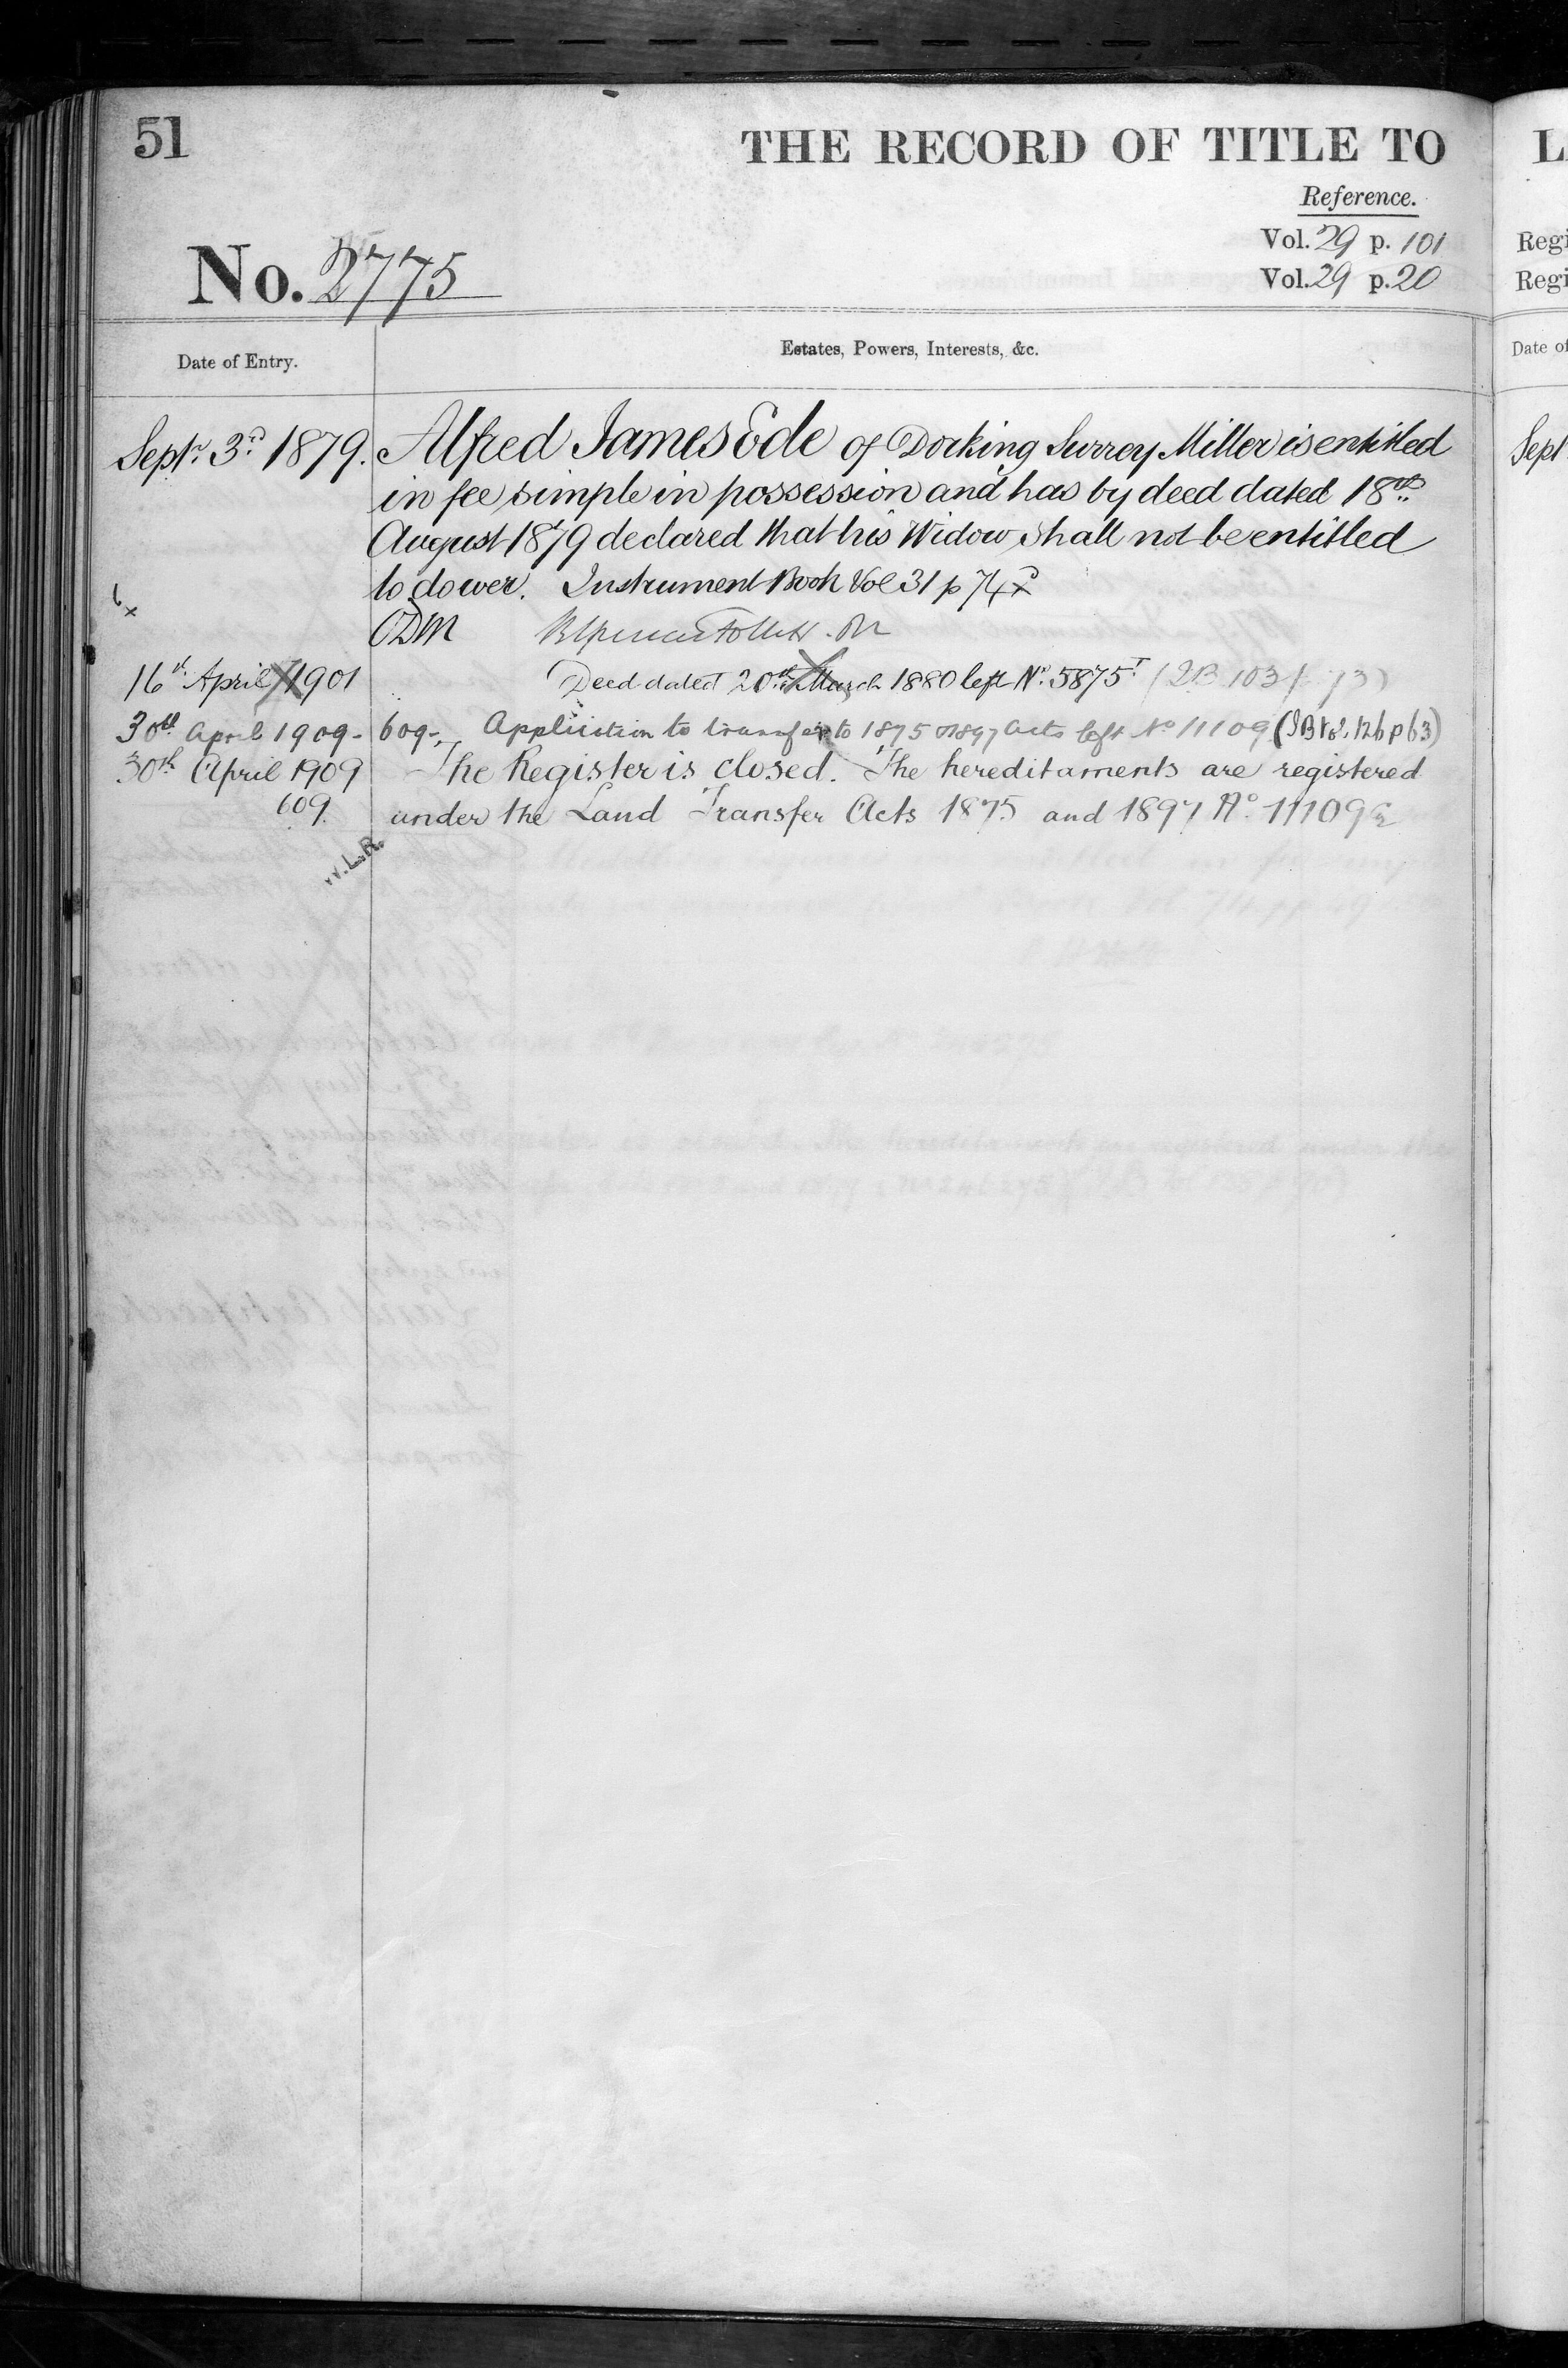 51
THE RECORD OF TITLE TO
L
Reference.
Vol. 29 p. 101
Vol. 29 p. 20
No. 2775
Regi
Regi
Date of Entry.
Estates, Powers, Interests, &c.
Date of
Septr. 3d 1879. Alfred James Ede of Dorking Surrey Miller is entitled
Sept
in fee simple in possession and has by deed dated 18th
August 1879 declared that his Widow shall not be entitled
to dower. Instrument Book Vol 31 p 74
16th April 1901 Deed dated 20th March 1880 left No. 5875 (2B 103 p 73)
30th April 1909 - 609 - Application to transfer to 1875 & 1897 Acts left No 11109
30th April 1909 The Register is closed. The hereditaments are registered
609. under the Land Transfer Acts 1875 and 1897 No. 11109